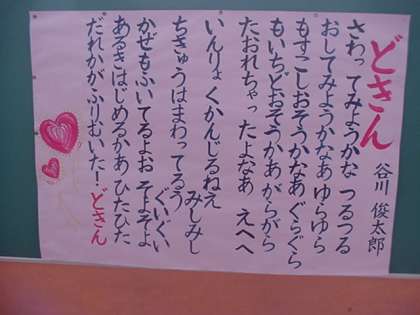 どきん
谷川 俊太郎
さわってみようかな つるつる
おしてみようかなあ ゆらゆら
もすこしおそうかなあ ぐらぐら
もいちどおそうかあ がらがら
たおれちゃったよなあ えへへ
いんりょくかんじるねえ みしみし
ちきゅうはまわってるう ぐいぐい
かぜもふいてるよお そよそよ
あるきはじめるかあ ひたひた
だれかがふりむいた! どきん